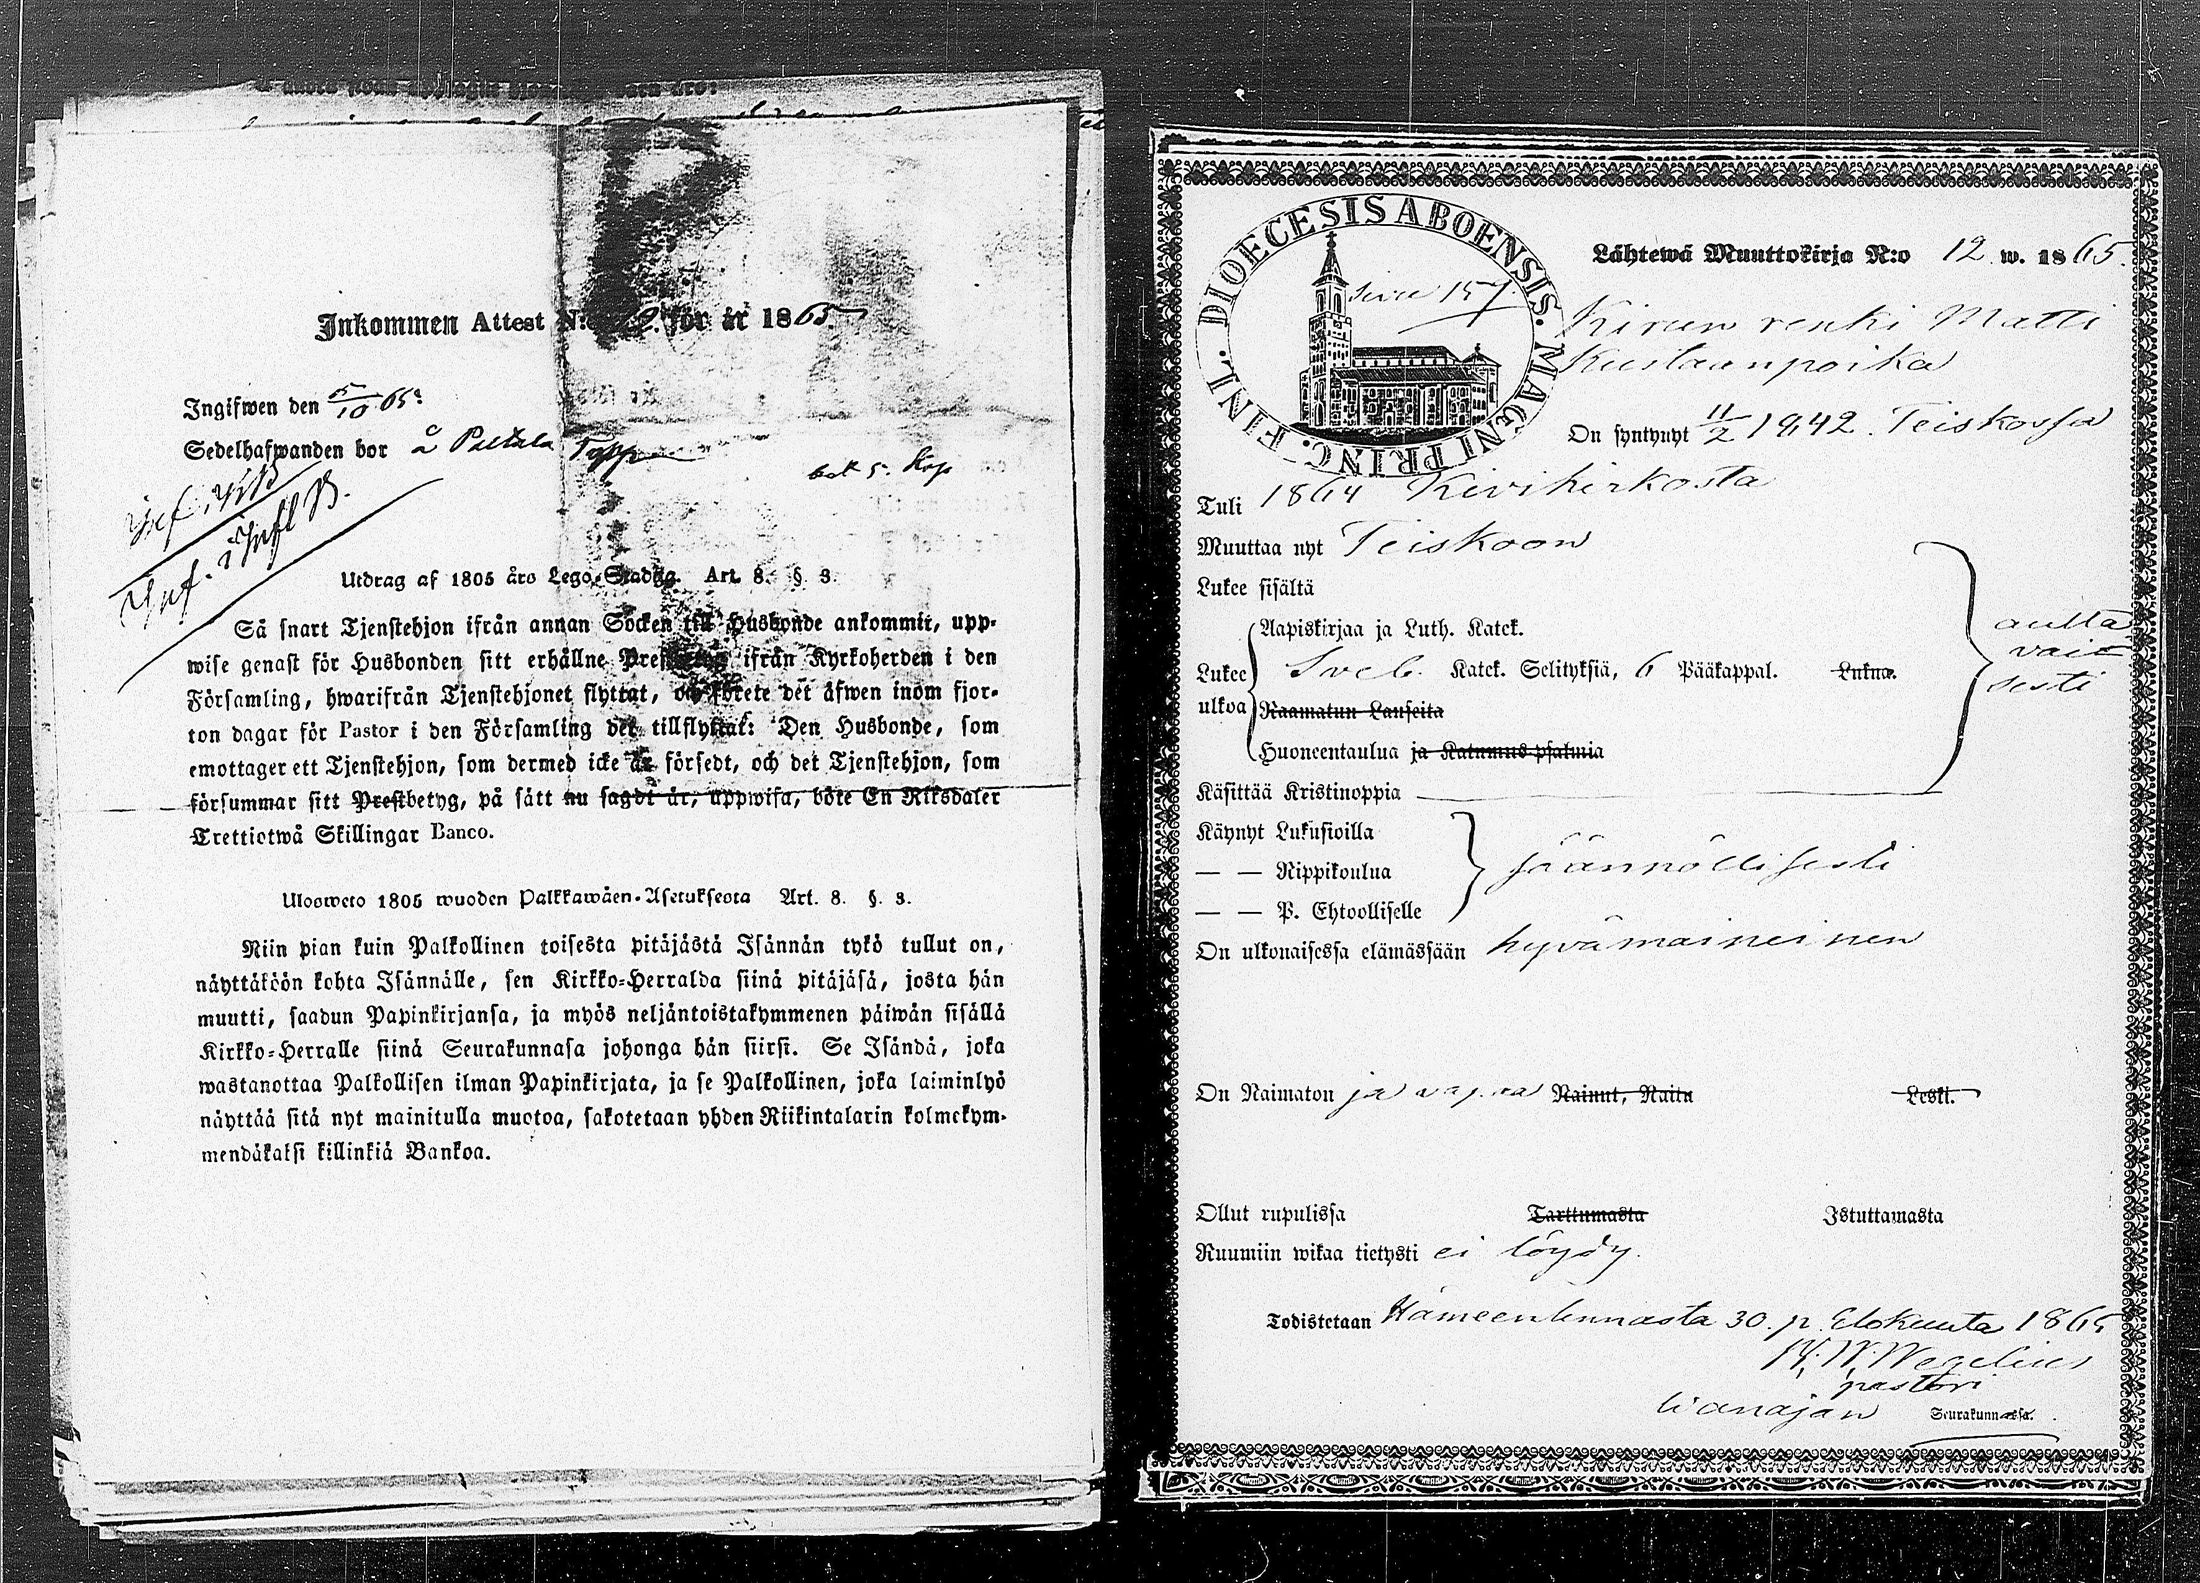 Inkommen Attest N:o för år 1865.
Ingifwen den 5/10 65.
Sedelhafwanden bor å Pultala Topp
bet 5. Kop
Inf. i KB
Inf. i Infl B.
Utdrag af 1805 års Lego-Stadga. Art. 8. §. 3.
Så snart Tjenstehjon ifrån annan Socken till Husbonde ankommit, upp-
wise genast för Husbonden sitt erhållne Prestbetyg ifrån Kyrkoherden i den
Församling, hwarifrån Tjenstehjonet flyttat, och förete det äfwen inom fjor-
ton dagar för Pastor i den Församling det tillflyttat: Den Husbonde, som
emottager ett Tjenstehjon, som dermed icke är försedt, och det Tjenstehjon, som
försummar sitt Prestbetyg, på sätt nu sagdt är, uppwisa, böte En Riksdaler
Trettiotwå Skillingar Banco.
Ulosweto 1805 wuoden Palkkawäen-Asetuksesta Art. 8. §. 3.
Niin pian kuin Palkollinen toisesta pitäjästä Isännän tykö tullut on,
näyttäköön kohta Isännälle, sen Kirkko-Herralda siinä pitäjäsä, josta hän
muutti, saadun Papinkirjansa, ja myös neljäntoistakymmenen päiwän sisällä
Kirkko-Herralle siinä Seurakunnasa johonga hän siirsi. Se Isändä, joka
wastanottaa Palkollisen ilman Papinkirjata, ja se Palkollinen, joka laiminlyö
näyttää sitä nyt mainitulla muotoa, sakotetaan yhden Riikintalarin kolmekym-
mendäkaksi killinkiä Bankoa.
FINL. DIOECESIS ABOENSIS. MAGNI PRINC.
sivu 157
Lähtewä Muuttokirja N:o 12 w. 1865.
Kirun renki Matti
Kustaanpoika
On syntynyt 11/2 1842. Teiskossa
Tuli 1864 Kivikirkosta
Muuttaa nyt Teiskoon
Lukee sisältä
Aapiskirjaa ja Luth. Katek.
Lukee Sveb. Katek. Selityksiä, 6 Pääkappal. Lukua.
ulkoa Raamatun Lauseita
Huoneentaulua ja Katumus-psalmia
autta
vai
sesti
Käsittää Kristinoppia
Käynyt Lukusioilla
— — Rippikoulua säännöllisesti
— — P. Ehtoolliselle
On ulkonaisessa elämässään hyvämaineinen
On Naimaton ja vapaa Nainut, Naitu Leski.
Ollut rupulissa Tarttumasta Istuttamasta
Ruumiin wikaa tietysti ei löydy.
Todistetaan Hämeenlinnasta 30. p. Elokuuta 1865
Wegelius
pastori
Vanajan Seurakunnassa.